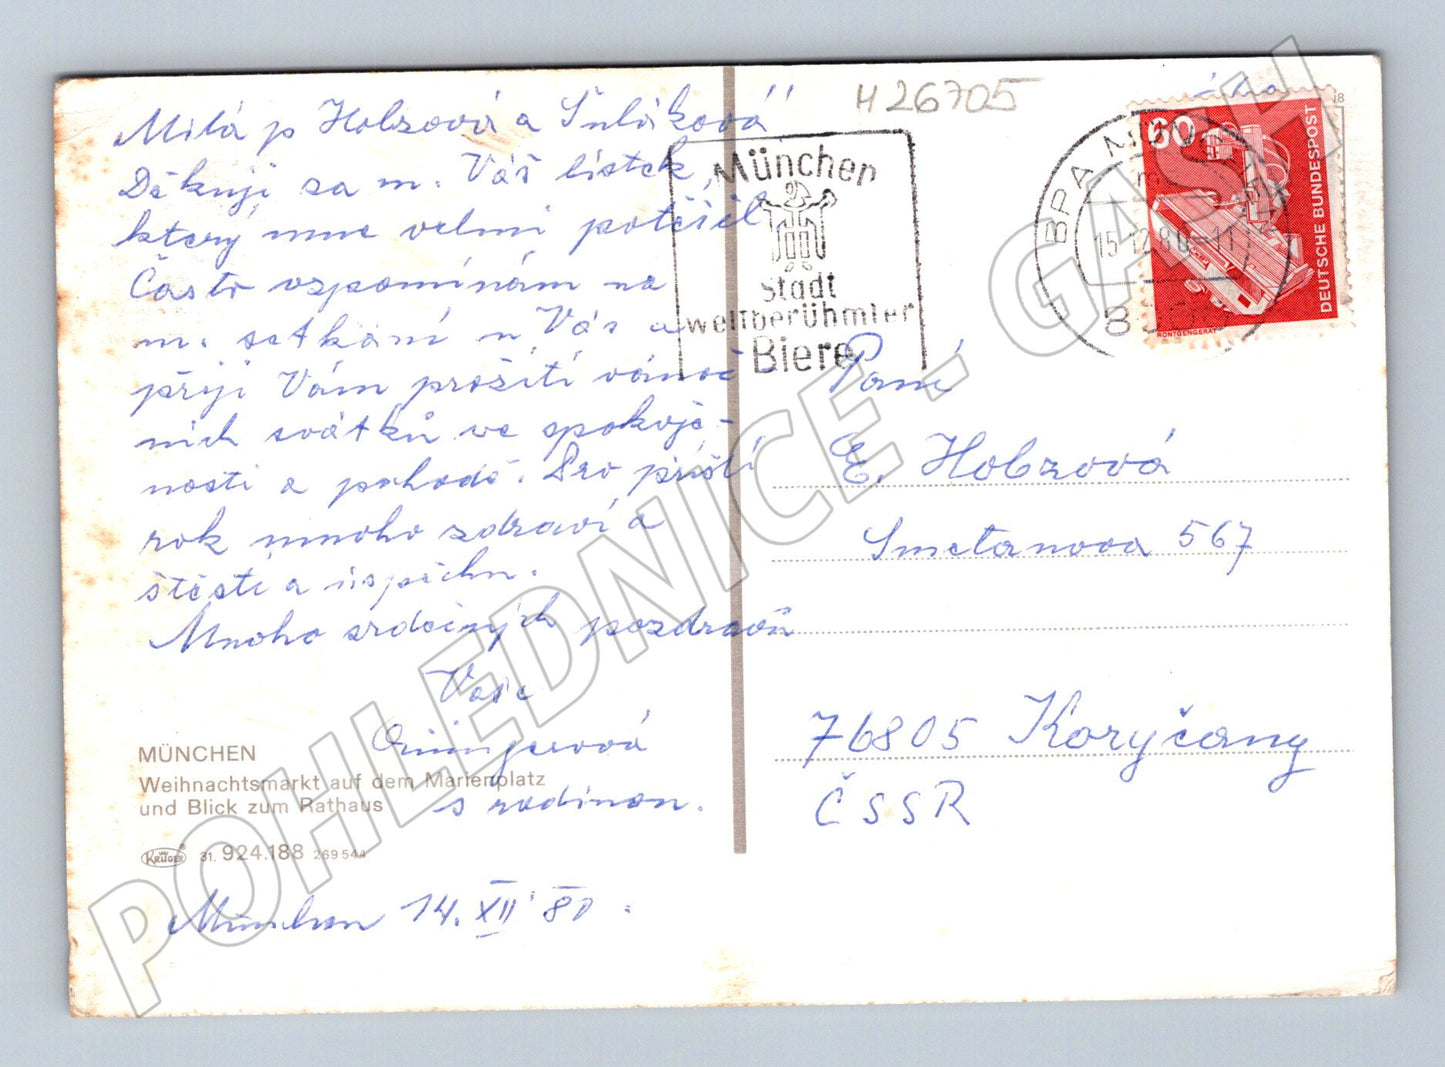 Milá p Hobzová a Šuláková
Děkuji za m. Váš lístek,
který mne velmi potěšil
Často vzpomínám na
m. setkání u Vás a
přiji Vám prožití vánoč
ních svátků ve spokoje-
nosti a pohodě. Pro příští
rok mnoho zdraví a
štěstí a úspěchu.
Mnoho srdečných pozdravů
Vaše
s rodinou.
MÜNCHEN
Weihnachtsmarkt auf dem Marienplatz
und Blick zum Rathaus
KRÜGER 31. 924.188 269544
München 14. XII 80.
H 26705
München
Stadt
weltberühmter
Biere
15.12.80-11
60
DEUTSCHE BUNDESPOST
RÖNTGENGERÄT
Paní
E. Hobzová
Smetanova 567
76805 Koryčany
ČSSR
POHLEDNICE - GASH